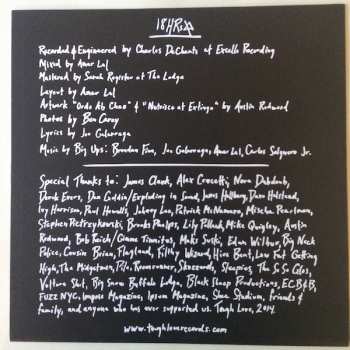 18HRS
Recorded & Engineered by Charles DeChants at Excello Recording
Mixed by Amar Lal
Mastered by Sarah Register at The Lodge
Layout by Amar Lal
Artwork "Ordo Ab Chao" & "Nutrisco et Extingo" by Austin Redwood
Photos by Ben Carey
Lyrics by Joe Galarraga
Music by Big Ups: Brendan Finn, Joe Galarraga, Amar Lal, Carlos Salguero Jr.
Special Thanks to: James Clark, Alex Crocetti, Nora Dabdoub,
Derek Evers, Dan Goldin/Exploding in Sound, James Hallberg, Dan Halstead,
Ivy Harrison, Paul Howells, Johnny Lee, Patrick McNamara, Mischa Pearlman,
Stephen Pietrzykowski, Brooks Phelps, Lily Pollack, Mike Quigley, Austin
Redwood, Bob Reich/Gimme Tinnitus, Maks Suski, Edan Wilber, Big Neck
Police, Cousin Brian, Flagland, Filthy Wizard, Hiss Bent, Low Fat Getting
High, The Midgetmen, Pile, Roomrunner, Shezzords, Sleepies, The So So Glos,
Vulture Shit, Big Snow Buffalo Lodge, Black Sheep Productions, ECB&B,
FUZZ NYC, Impose Magazine, Ipsum Magazine, Shea Stadium, friends &
family, and anyone who has ever supported us. Tough Love, 2014.
www.toughloverecords.com